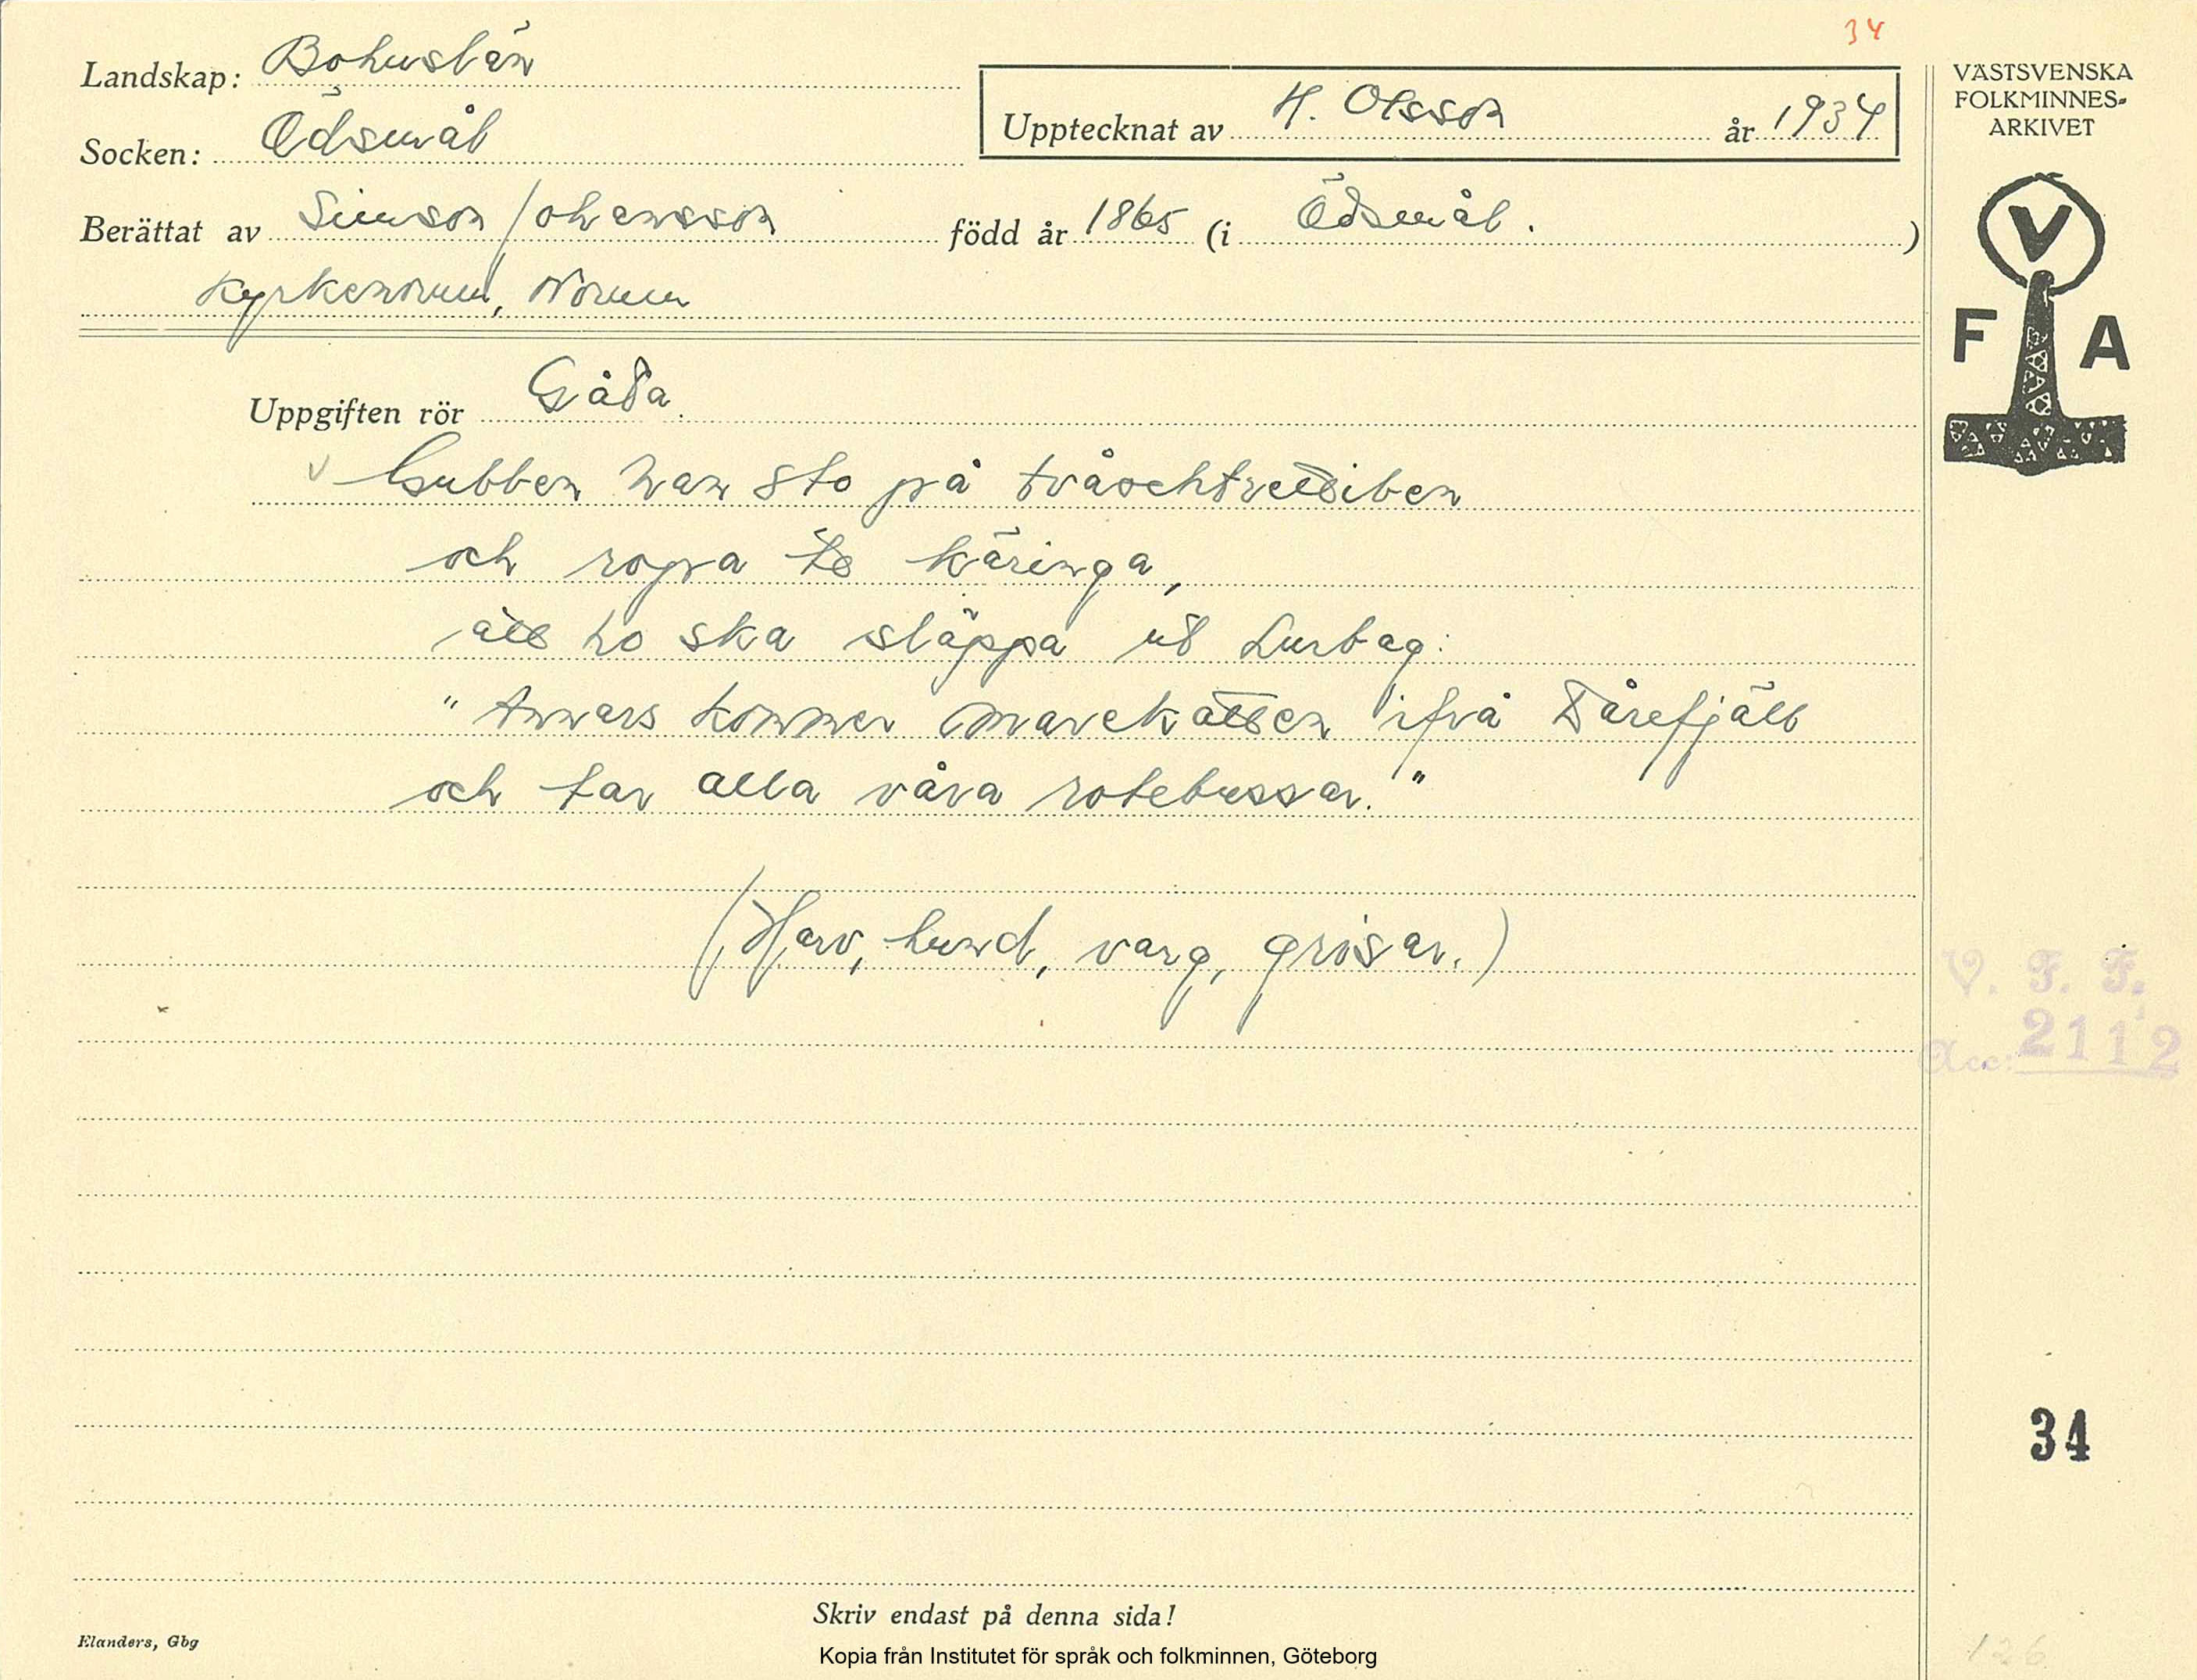 34
Landskap: Bohuslän
Socken: Ödsmål
Upptecknat av H. Olsson år 1934
Berättat av Simson Johansson född år 1865 (i Ödsmål. )
Kyrkenorum, Norum
VÄSTSVENSKA
FOLKMINNES-
ARKIVET
V
F A
Uppgiften rör Gåta.
Gubben han sto på
och ropa te käringa,
att ho ska släppa ut Lurbag:
"Annars kommer Marekatten ifrå Dårefjäll
och tar alla våra rotebussar."
(Harv, hund, varg, grisar.)
V. F. F.
Acc: 2112
34
Skriv endast på denna sida!
Elanders, Gbg
Kopia från Institutet för språk och folkminnen, Göteborg
126